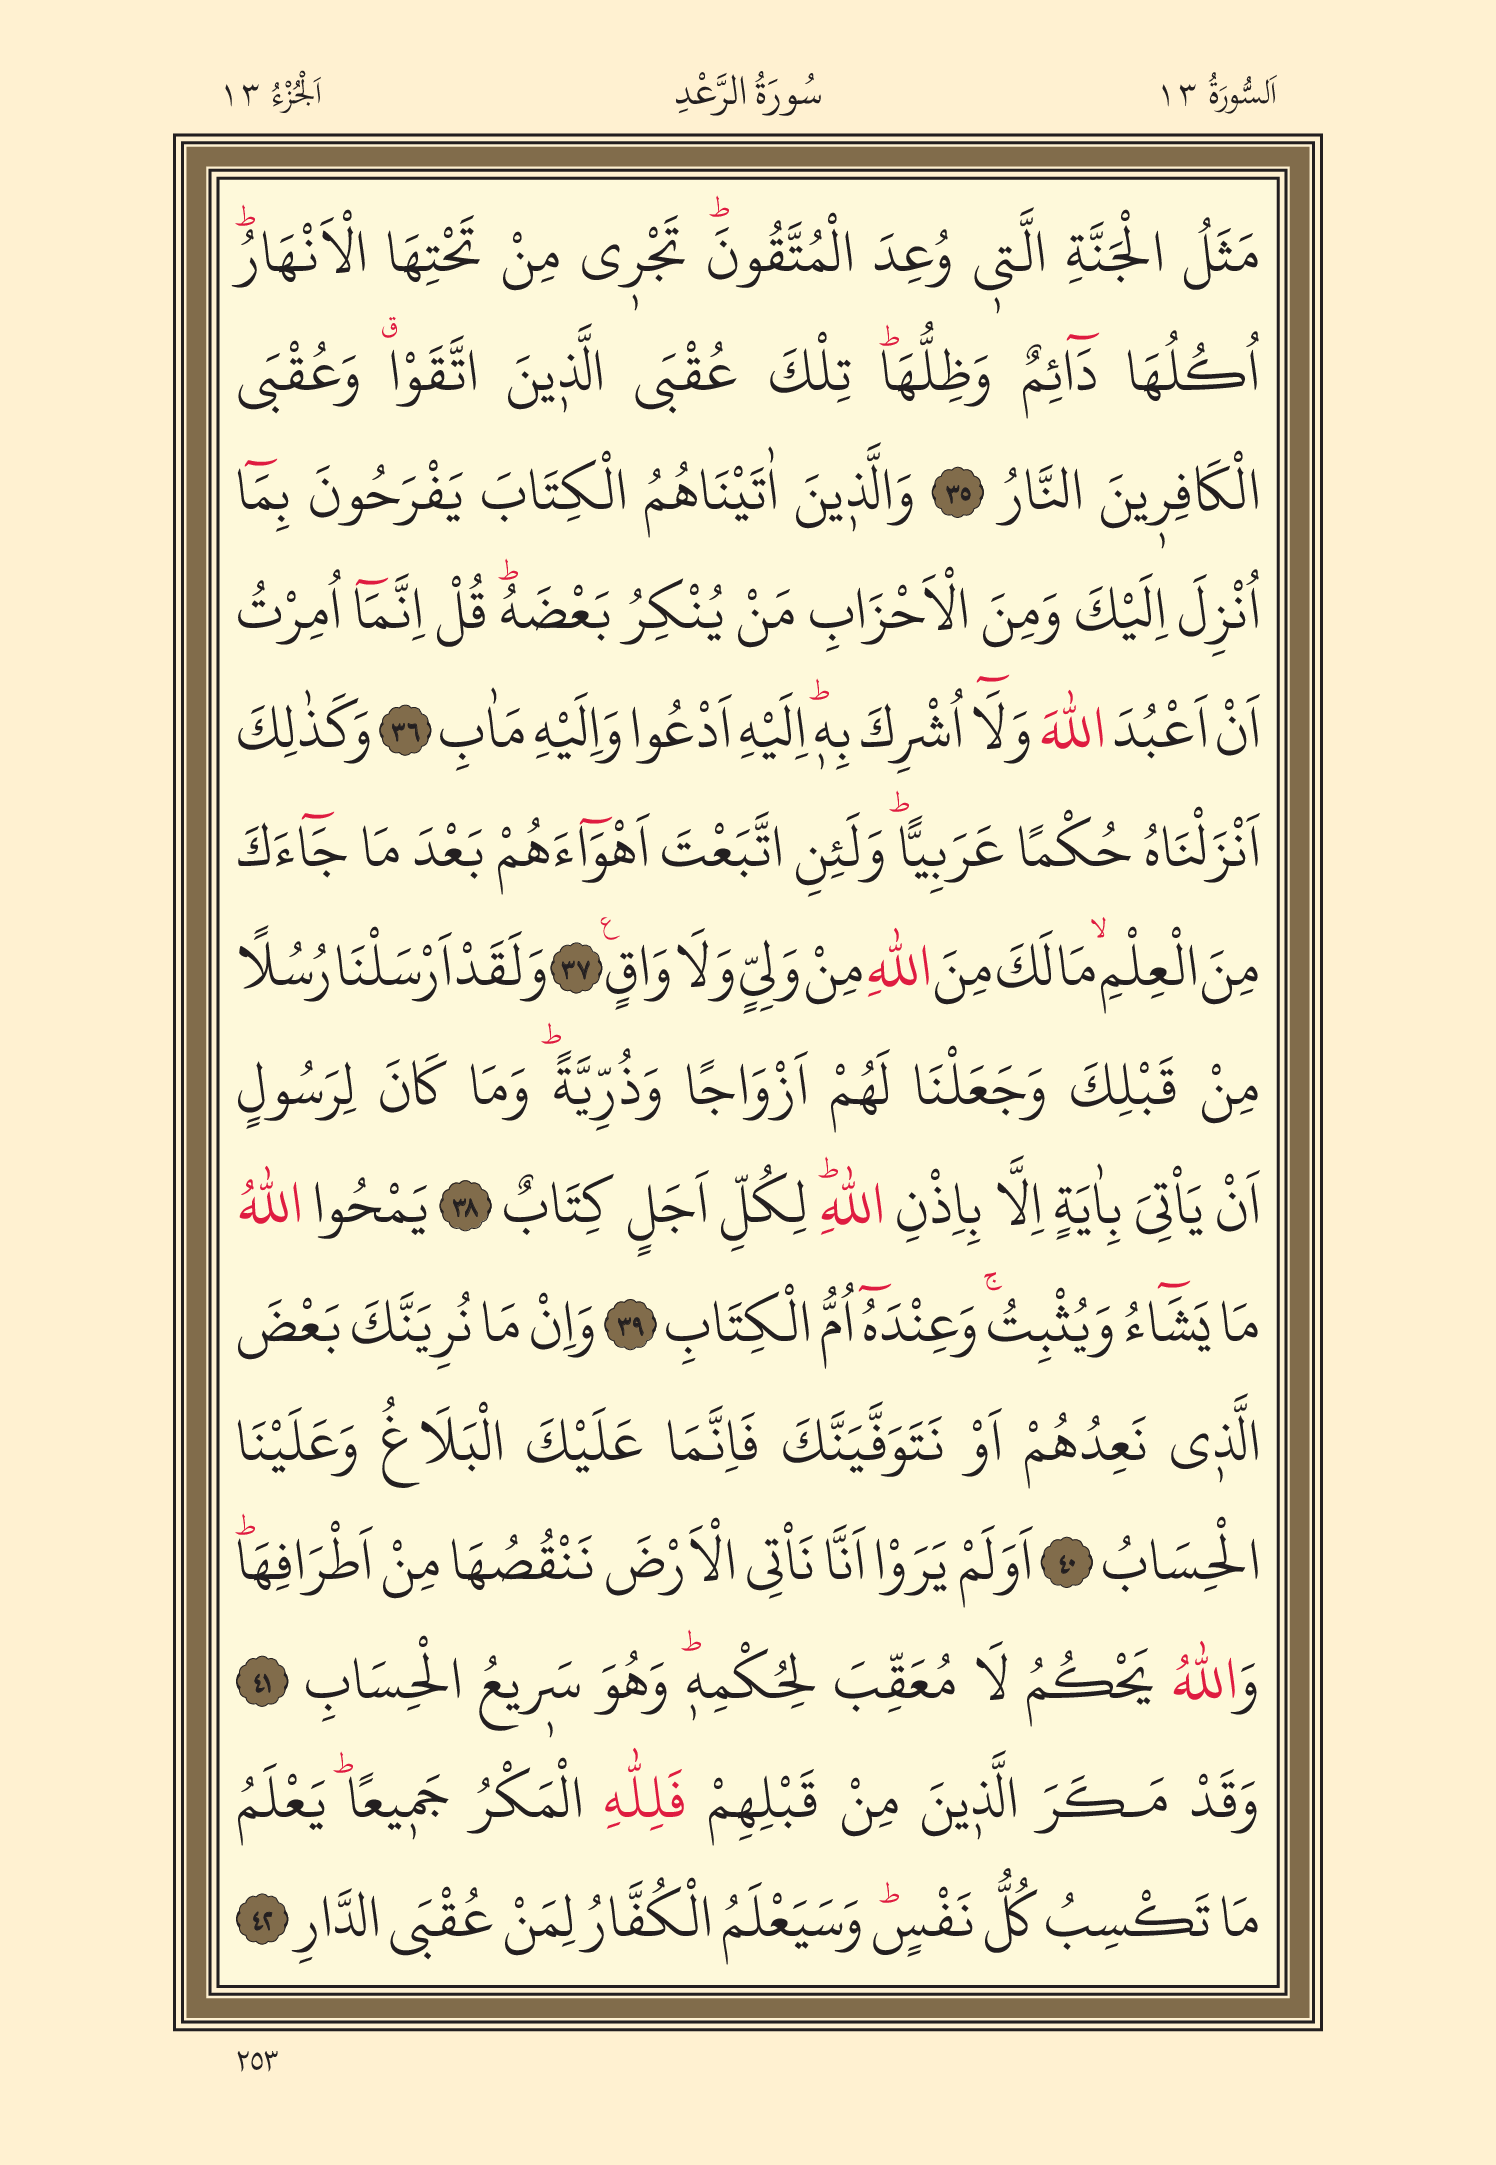 اَلسُّورَةُ ١٣ سُورَةُ الرَّعْدِ اَلْجُزْءُ ١٣
مَثَلُ الْجَنَّةِ الَّتٖي وُعِدَ الْمُتَّقُونَؕ تَجْرٖي مِنْ تَحْتِهَا الْاَنْهَارُؕ
اُكُلُهَا دَٓائِمٌ وَظِلُّهَاؕ تِلْكَ عُقْبَى الَّذٖينَ اتَّقَوْاࣗ وَعُقْبَى
الْكَافِرٖينَ النَّارُ ﴿٣٥﴾ وَالَّذٖينَ اٰتَيْنَاهُمُ الْكِتَابَ يَفْرَحُونَ بِمَٓا
اُنْزِلَ اِلَيْكَ وَمِنَ الْاَحْزَابِ مَنْ يُنْكِرُ بَعْضَهُؕ قُلْ اِنَّمَٓا اُمِرْتُ
اَنْ اَعْبُدَ اللّٰهَ وَلَٓا اُشْرِكَ بِهٖؕ اِلَيْهِ اَدْعُوا وَاِلَيْهِ مَاٰبِ ﴿٣٦﴾ وَكَذٰلِكَ
اَنْزَلْنَاهُ حُكْمًا عَرَبِيًّاؕ وَلَئِنِ اتَّبَعْتَ اَهْوَٓاءَهُمْ بَعْدَ مَا جَٓاءَكَ
مِنَ الْعِلْمِۙ مَا لَكَ مِنَ اللّٰهِ مِنْ وَلِيٍّ وَلَا وَاقٍࣖ ﴿٣٧﴾ وَلَقَدْ اَرْسَلْنَا رُسُلًا
مِنْ قَبْلِكَ وَجَعَلْنَا لَهُمْ اَزْوَاجًا وَذُرِّيَّةًؕ وَمَا كَانَ لِرَسُولٍ
اَنْ يَاْتِيَ بِاٰيَةٍ اِلَّا بِاِذْنِ اللّٰهِؕ لِكُلِّ اَجَلٍ كِتَابٌ ﴿٣٨﴾ يَمْحُوا اللّٰهُ
مَا يَشَٓاءُ وَيُثْبِتُۚ وَعِنْدَهُٓ اُمُّ الْكِتَابِ ﴿٣٩﴾ وَاِنْ مَا نُرِيَنَّكَ بَعْضَ
الَّذٖي نَعِدُهُمْ اَوْ نَتَوَفَّيَنَّكَ فَاِنَّمَا عَلَيْكَ الْبَلَاغُ وَعَلَيْنَا
الْحِسَابُ ﴿٤٠﴾ اَوَلَمْ يَرَوْا اَنَّا نَاْتِي الْاَرْضَ نَنْقُصُهَا مِنْ اَطْرَافِهَاؕ
وَاللّٰهُ يَحْكُمُ لَا مُعَقِّبَ لِحُكْمِهٖؕ وَهُوَ سَرٖيعُ الْحِسَابِ ﴿٤١﴾
وَقَدْ مَكَرَ الَّذٖينَ مِنْ قَبْلِهِمْ فَلِلّٰهِ الْمَكْرُ جَمٖيعًاؕ يَعْلَمُ
مَا تَكْسِبُ كُلُّ نَفْسٍؕ وَسَيَعْلَمُ الْكُفَّارُ لِمَنْ عُقْبَى الدَّارِ ﴿٤٢﴾
٢٥٣